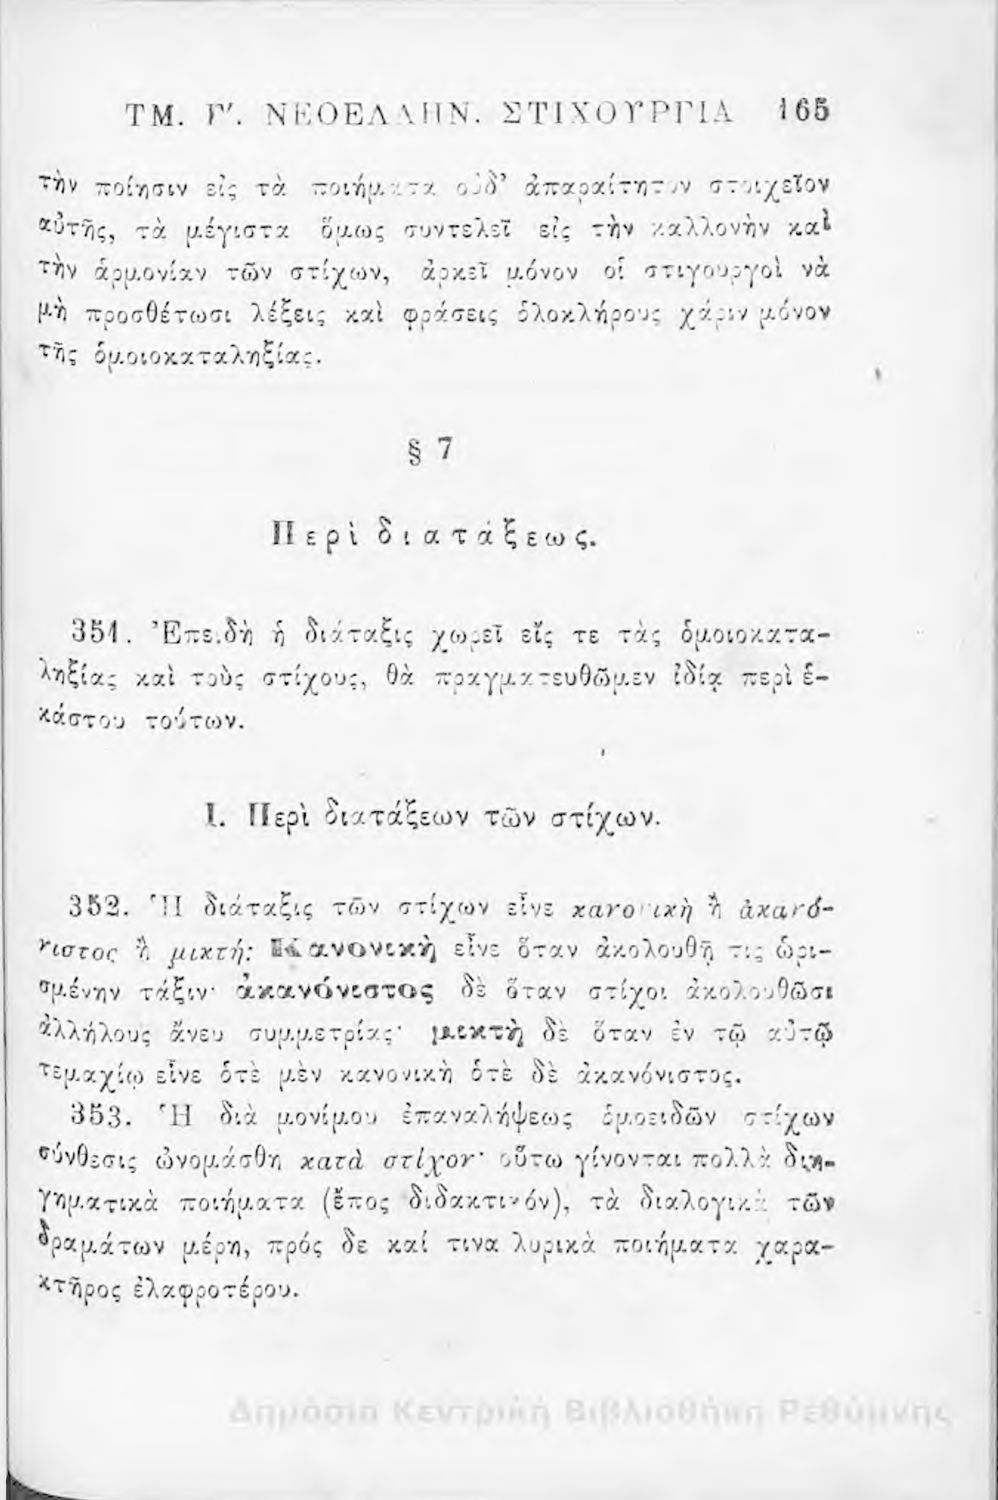 ΤΜ. Γ'. ΝΕΟΕΛΛΗΝ. ΣΤΙΧΟΥΡΓΙΑ 165
τὴν ποίησιν εἰς τὰ ποιήματα οὐδ' ἀπαραίτητον στοιχεῖον
αὐτῆς, τὰ μέγιστα ὅμως συντελεῖ εἰς τὴν καλλονὴν καὶ
τὴν ἁρμονίαν τῶν στίχων, ἀρκεῖ μόνον οἱ στιγουργοὶ νὰ
μὴ προσθέτωσι λέξεις καὶ φράσεις ὁλοκλήρους χάριν μόνον
τῆς ὁμοιοκαταληξίας.
§ 7
Περὶ διατάξεως.
351. Ἐπειδὴ ἡ διάταξις χωρεῖ εἴς τε τὰς ὁμοιοκατα-
ληξίας καὶ τοὺς στίχους, θὰ πραγματευθῶμεν ἰδίᾳ περὶ ἑ-
κάστου τούτων.
I. Περὶ διατάξεων τῶν στίχων.
352. Ἡ διάταξις τῶν στίχων εἶνε κανονικὴ ἢ ἀκανό-
νιστος ἢ μικτή: Κανονικὴ εἶνε ὅταν ἀκολουθῇ τις ὡρι-
σμένην τάξιν· ἀκανόνιστος δὲ ὅταν στίχοι ἀκολουθῶσι
ἀλλήλους ἄνευ συμμετρίας· μικτὴ δὲ ὅταν ἐν τῷ αὐτῷ
τεμαχίῳ εἶνε ὁτὲ μὲν κανονικὴ ὁτὲ δὲ ἀκανόνιστος.
353. Ἡ διὰ μονίμου ἐπαναλήψεως ὁμοειδῶν στίχων
σύνθεσις ὠνομάσθη κατὰ στίχον· οὕτω γίνονται πολλὰ διη-
γηματικὰ ποιήματα (ἔπος διδακτικόν), τὰ διαλογικὰ τῶν
δραμάτων μέρη, πρός δε καί τινα λυρικὰ ποιήματα χαρα-
κτῆρος ἐλαφροτέρου.
Δημόσια Κεντρική Βιβλιοθήκη Ρεθύμνης